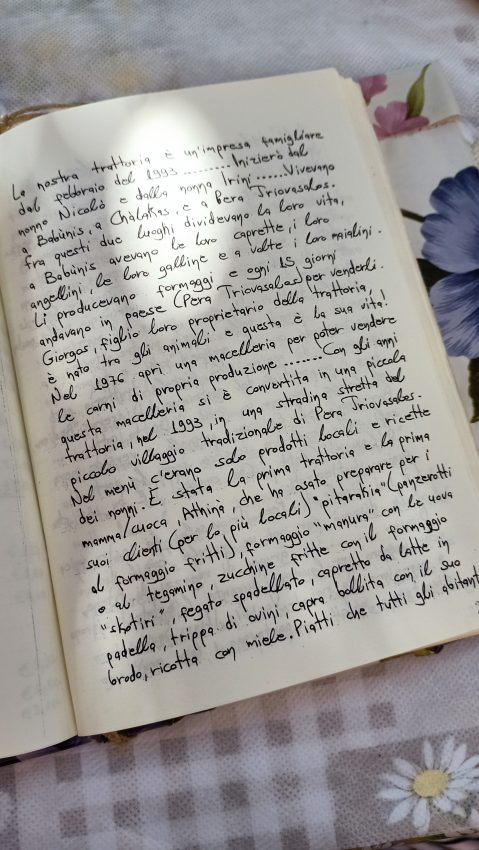 La nostra trattoria è un'impresa famigliare
dal febbraio del 1993 ......... Inizierò dal
nonno Nicolò e dalla nonna Irini ...... Vivevano
a Babùnis, a Chàlakas, e a Pera Triovasalos.
Fra questi due luoghi dividevano la loro vita,
a Babùnis avevano le loro caprette, i loro
angellini, le loro galline e a volte i loro maialini.
Lì producevano formaggi e ogni 15 giorni
andavano in paese (Pera Triovasalos) per venderli.
Giorgos, figlio loro proprietario della trattoria,
è nato tra gli animali e questa è la sua vita!
Nel 1976 aprì una macelleria per poter vendere
le carni di propria produzione ....... Con gli anni
questa macelleria si è convertita in una piccola
trattoria, nel 1993, in una stradina stretta del
piccolo villaggio tradizionale di Pera Triovasalos.
Nel menù c'erano solo prodotti locali e ricette
dei nonni. È stata la prima trattoria e la prima
mamma/cuoca, Athinà, che ha osato preparare per i
suoi clienti (per lo più locali) "pitarakia" (panzerotti
al formaggio fritti), formaggio "manura" con le uova
o al tegamino, zucchine fritte con il formaggio
"skotiri", fegato spadellato, capretto da latte in
padella, trippa di ovini, capra bollita con il suo
brodo, ricotta con miele. Piatti che tutti gli abitant